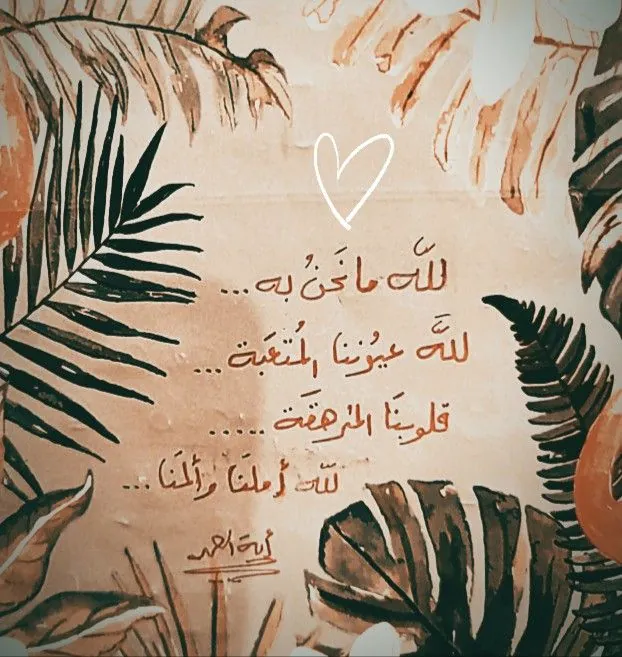 للَّه مانَحنُ به...
للَّه عيُوننا المُتعَبة...
قلوبنَا المُرهقَة.....
للّه أملنَا وألمَنا...